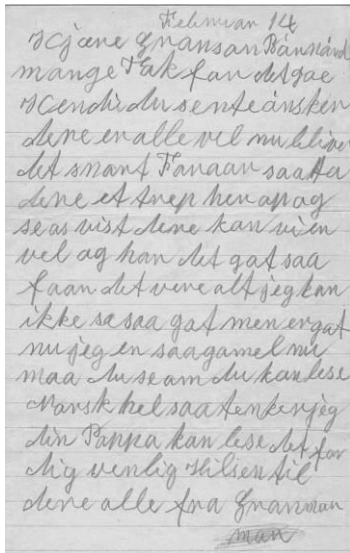 Februar 14
Kjære Gransan Bánnárd
mange Tak for det gae
Kendù du sente ánsker
dere er alle vel nu bliver
det snart Foraar saa ta
dere et trep her op og
se os vist dere kan vi er
vel og har det got saa
faar det vere alt jeg kan
ikke se saa got men er got
nu jeg en saa gamel nu
maa du se om du kan lese
Norsk hel saa tenker jeg
din Pappa kan lese det for
dig venlig Hilsen til
dere alle fra Granman
man